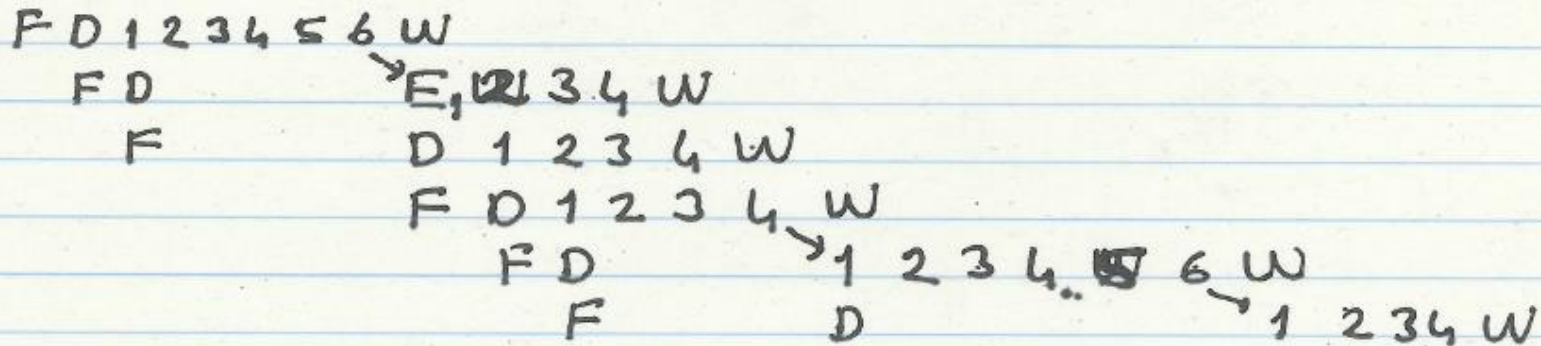 F D 1 2 3 4 5 6 W
F D E, 3 4 W
F D 1 2 3 4 W
F D 1 2 3 4 W
F D 1 2 3 4 .. 6 W
F D 1 2 3 4 W